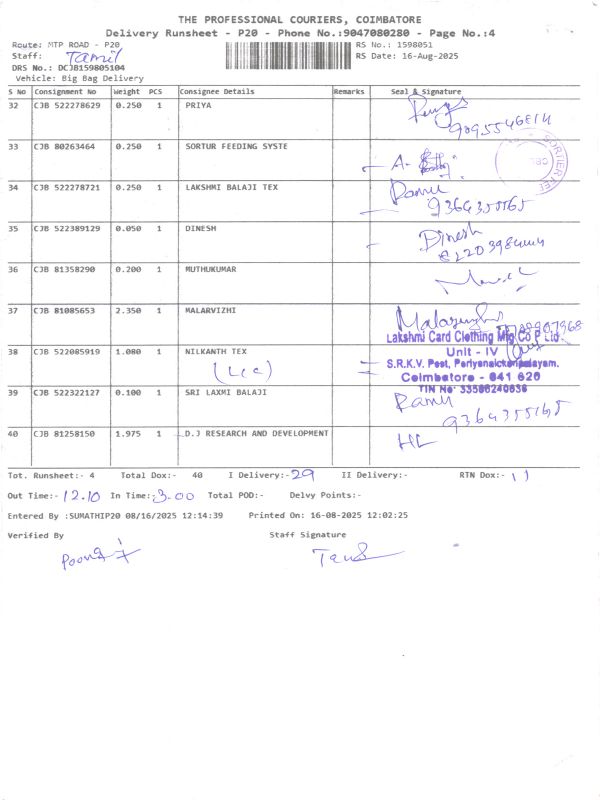 THE PROFESSIONAL COURIERS, COIMBATORE
Delivery Runsheet - P20 - Phone No.:9047080280 - Page No.:4
Route: MTP ROAD - P20 RS No.: 1598051
Staff: Tamil RS Date: 16-Aug-2025
DRS No.: DCJB159805104
Vehicle: Big Bag Delivery
S No Consignment No Weight PCS Consignee Details Remarks Seal & Signature
32 CJB 522278629 0.250 1 PRIYA
33 CJB 80263464 0.250 1 SORTUR FEEDING SYSTE
34 CJB 522278721 0.250 1 LAKSHMI BALAJI TEX Ramu
9364355165
35 CJB 522389129 0.050 1 DINESH Dinesh
36 CJB 81358290 0.200 1 MUTHUKUMAR
37 CJB 81085653 2.350 1 MALARVIZHI
Lakshmi Card Clothing Mfg Co P Ltd.
38 CJB 522085919 1.080 1 NILKANTH TEX Unit - IV
S.R.K.V. Post, Periyanaickenpalayam.
Coimbatore - 641 020
39 CJB 522322127 0.100 1 SRI LAXMI BALAJI Ramu
9364355165
40 CJB 81258150 1.975 1 D.J RESEARCH AND DEVELOPMENT
Tot. Runsheet:- 4 Total Dox:- 40 I Delivery:- 29 II Delivery:- RTN Dox:- 11
Out Time:- 12.10 In Time:- 3.00 Total POD:- Delvy Points:-
Entered By :SUMATHIP20 08/16/2025 12:14:39 Printed On: 16-08-2025 12:02:25
Verified By Staff Signature